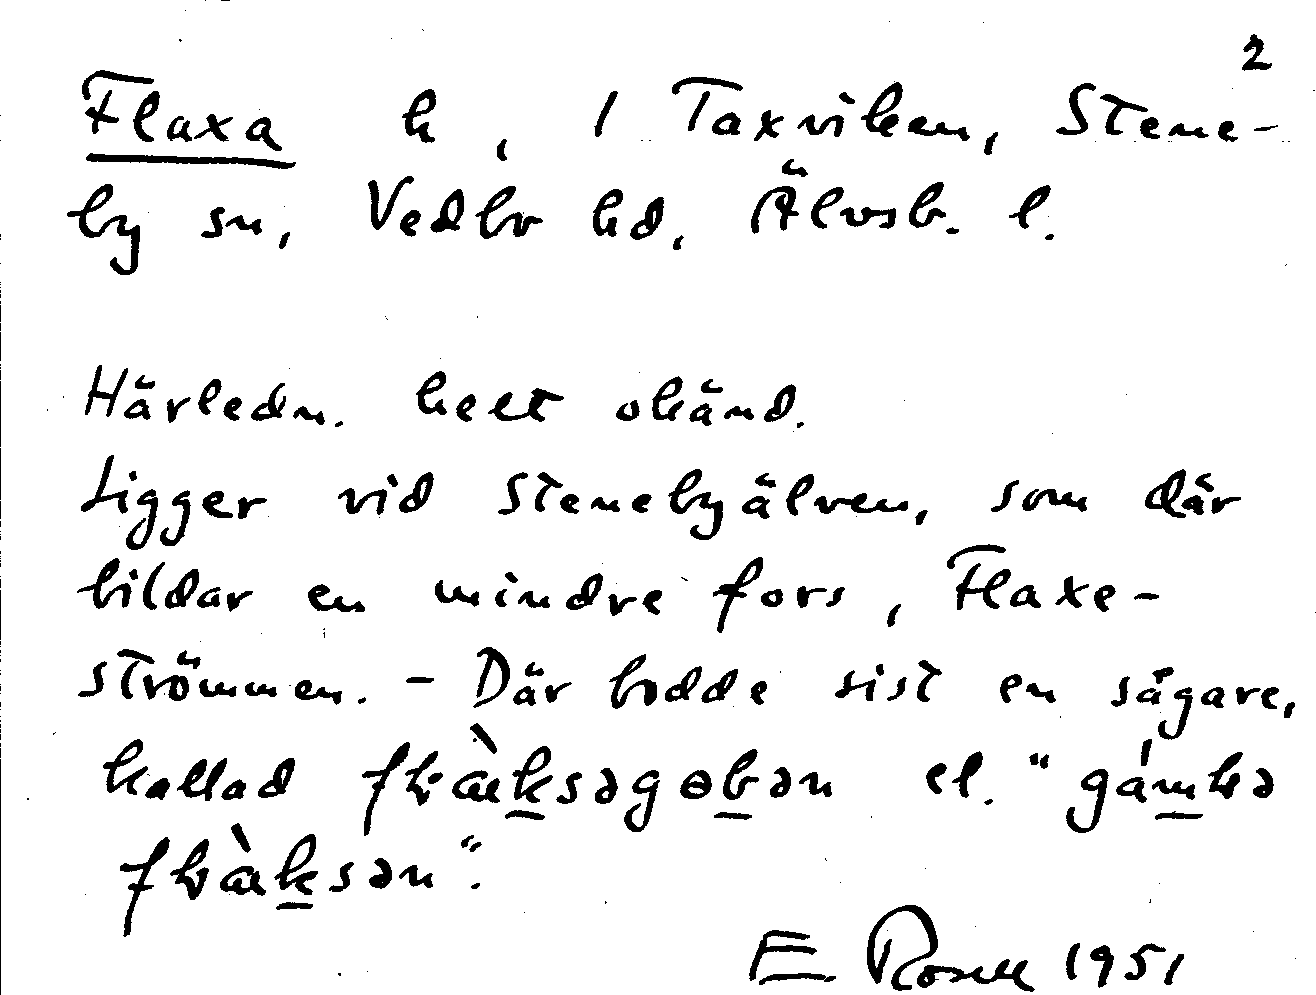 2
Flaxa h, 1 Taxviken, Stene-
by sn, Vedbo hd, Älvsb. l.
Härledn. helt okänd.
Ligger vid Stenebyälven, som där
bildar en mindre fors, Flaxe-
strömmen. - Där bodde sist en sågare,
kallad el. "
".
E Rosell 1951